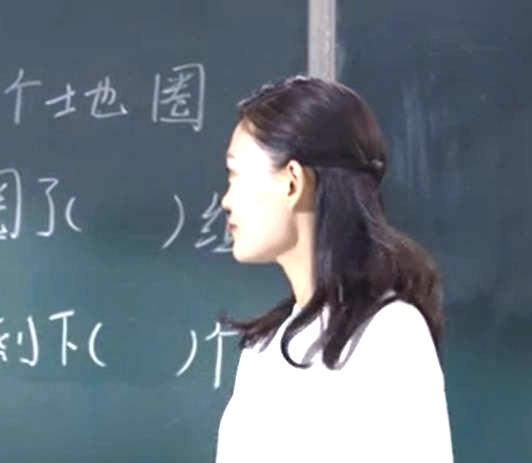 个地圈
圈了( )组
剩下( )个